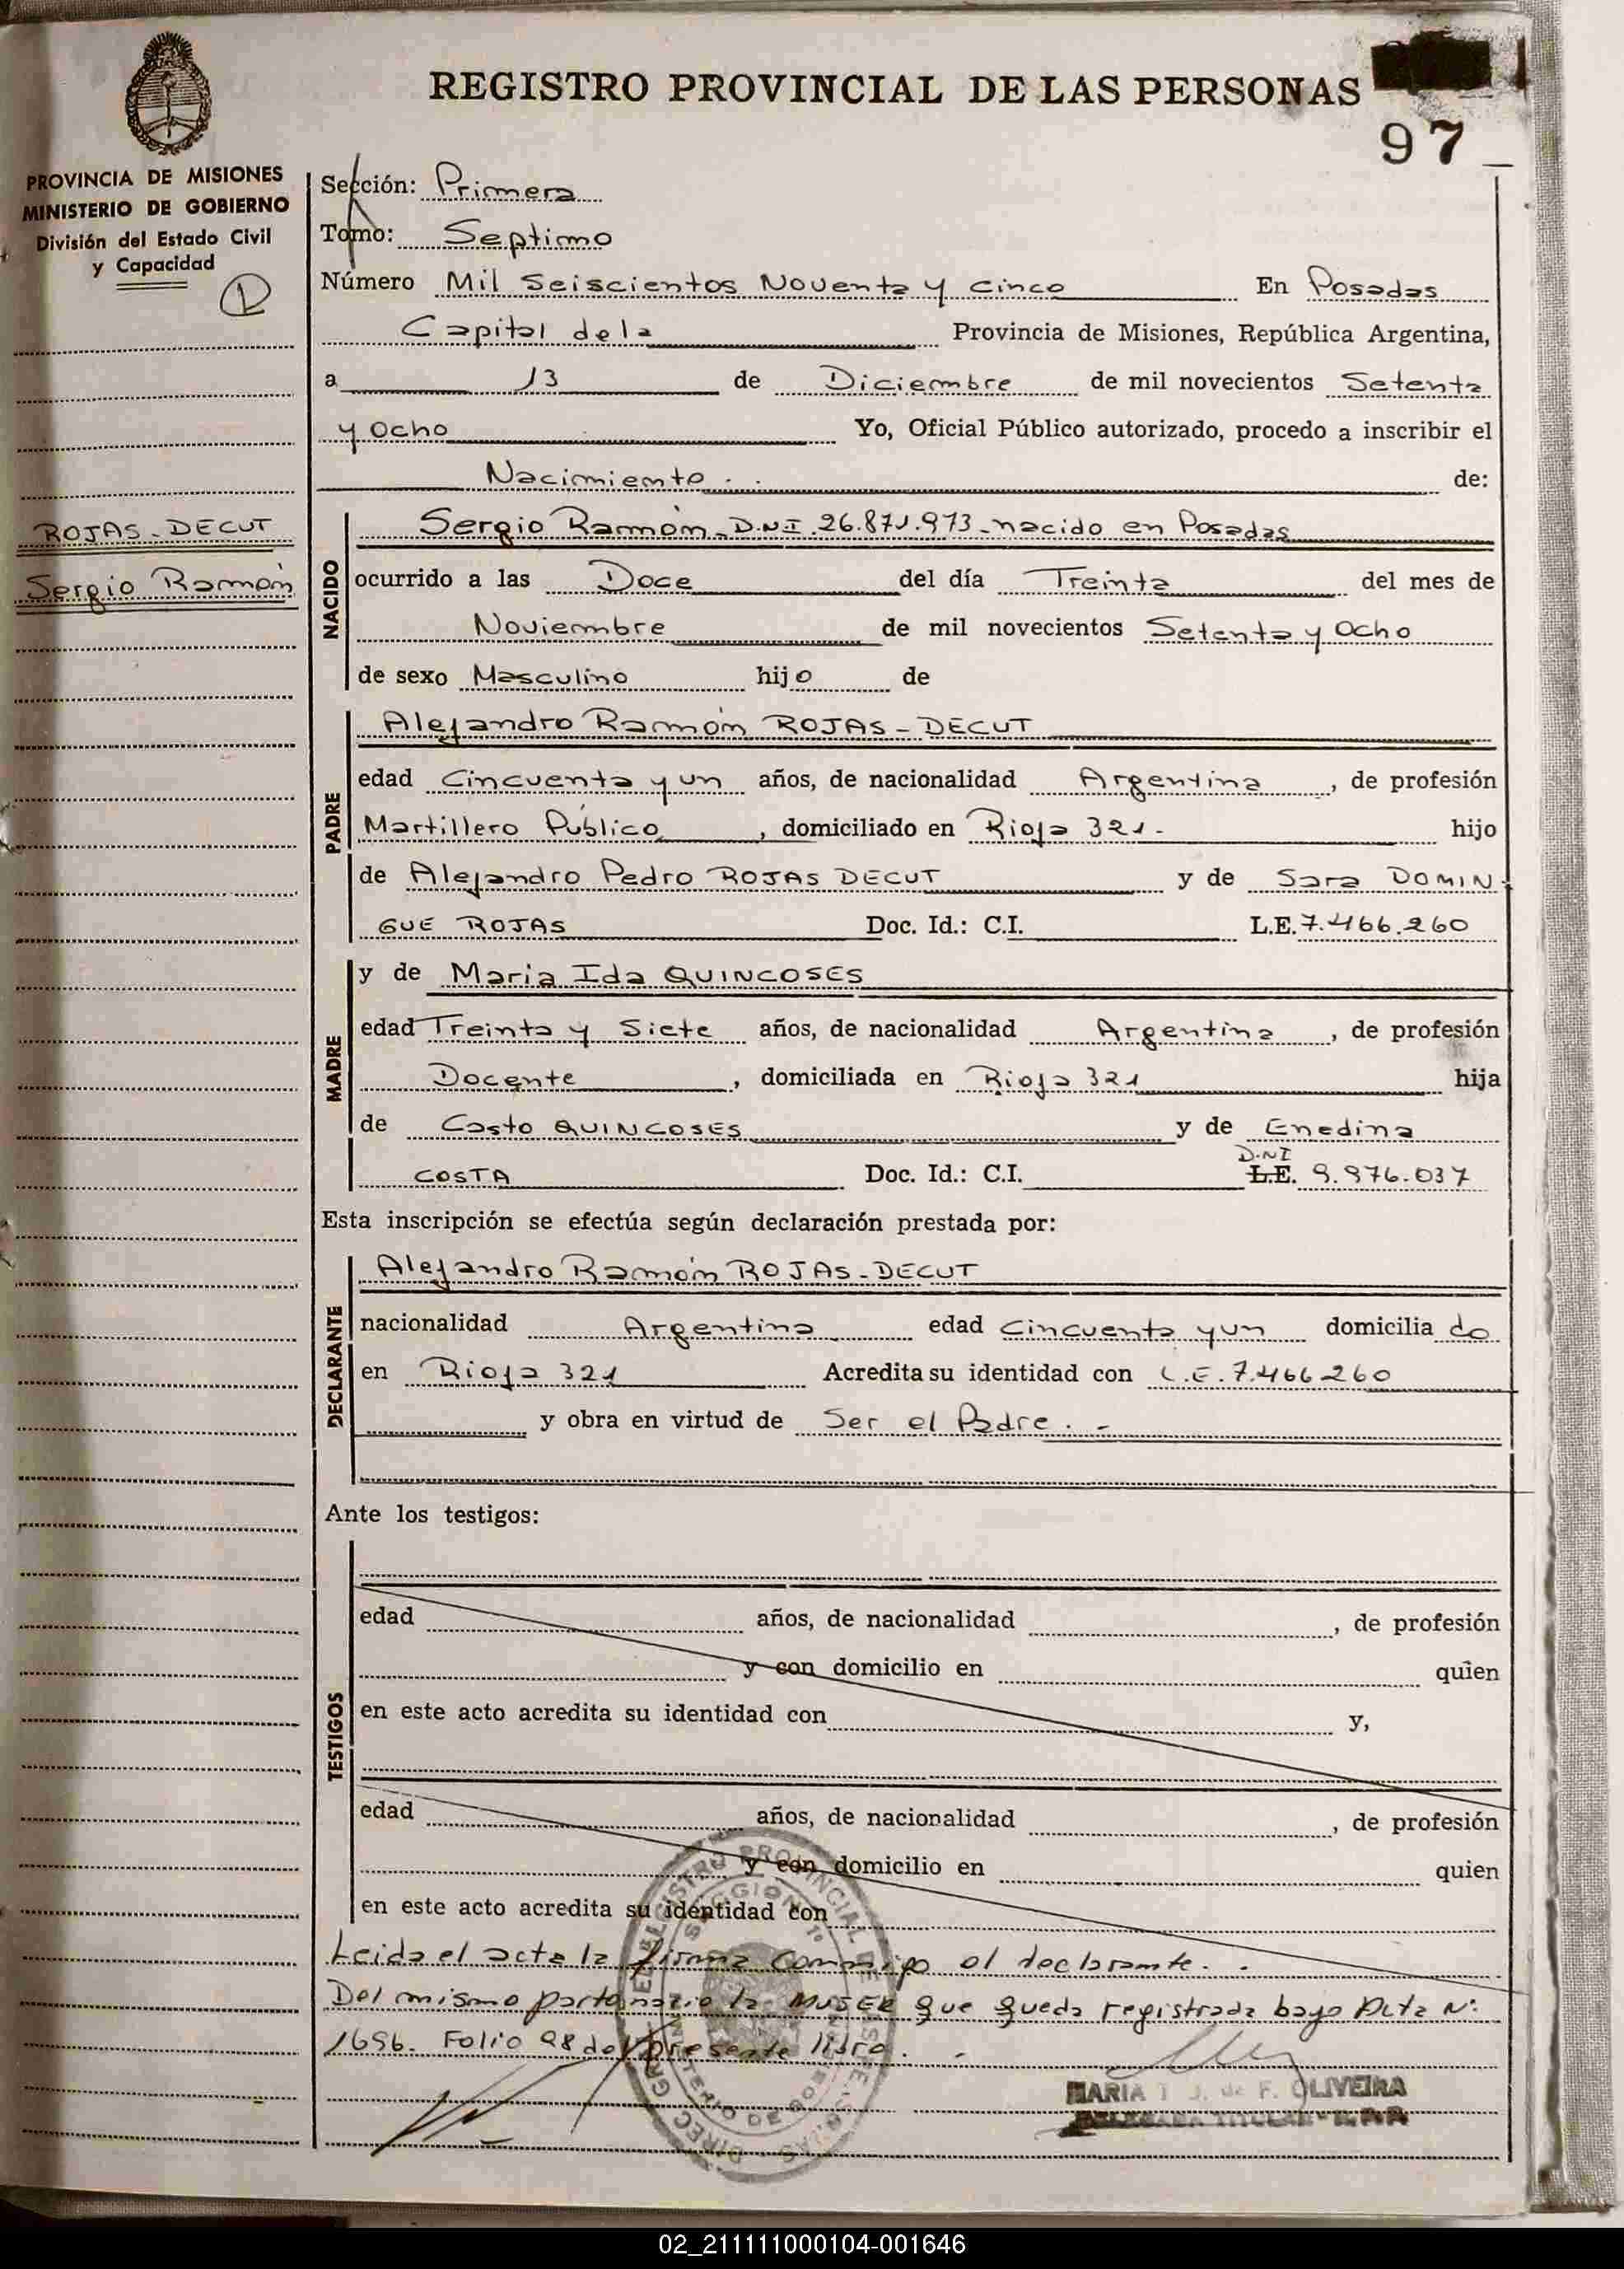 REGISTRO PROVINCIAL DE LAS PERSONAS
97
PROVINCIA DE MISIONES
MINISTERIO DE GOBIERNO
División del Estado Civil
y Capacidad
Sección: Primera
Tomo: Septimo
Número Mil Seiscientos Noventa y cinco En Posadas
Capital de la Provincia de Misiones, República Argentina,
a 13 de Diciembre de mil novecientos Setenta
y Ocho Yo, Oficial Público autorizado, procedo a inscribir el
Nacimiento de:
ROJAS-DECUT
Sergio Ramón
NACIDO
Sergio Ramón D.N.I. 26.871.973 - nacido en Posadas
ocurrido a las Doce del día Treinta del mes de
Noviembre de mil novecientos Setenta y Ocho
de sexo Masculino hijo de
PADRE
Alejandro Ramón ROJAS-DECUT
edad Cincuenta y un años, de nacionalidad Argentina, de profesión
Martillero Público, domiciliado en Rioja 321.- hijo
de Alejandro Pedro ROJAS DECUT y de Sara DOMIN
GUE ROJAS Doc. Id.: C.I. L.E. 7.466.260
MADRE
y de Maria Ida QUINCOSES
edad Treinta y Siete años, de nacionalidad Argentina, de profesión
Docente, domiciliada en Rioja 321 hija
de Casto QUINCOSES y de Enedina
D.N.I
COSTA Doc. Id.: C.I. L.E. 9.976.037
Esta inscripción se efectúa según declaración prestada por:
DECLARANTE
Alejandro Ramón ROJAS-DECUT
nacionalidad Argentina edad Cincuenta y un domiciliado
en Rioja 321 Acredita su identidad con L.E. 7.466.260
y obra en virtud de Ser el Padre.-
Ante los testigos:
TESTIGOS
edad años, de nacionalidad, de profesión
y con domicilio en quien
en este acto acredita su identidad con y,
edad años, de nacionalidad, de profesión
y con domicilio en quien
en este acto acredita su identidad con
Leida el acta la firma conmigo el declarante.
Del mismo parto nació la MUJER que queda registrada bajo Acta Nº
1696. Folio 98 del presente libro.
MARIA T J. de F. OLIVEIRA
DELEGADA TITULAR - R.P.P.
02_211111000104-001646